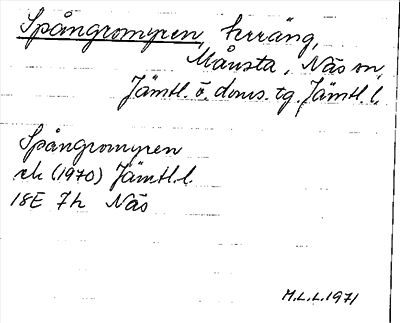 Spångromyren, terräng,
Månsta, Näs sn,
Jämtl. ö. doms. tg. Jämtl. l.
Spångromyren
ek (1970) Jämtl. l.
18E 7h Näs
M.L.L. 1971